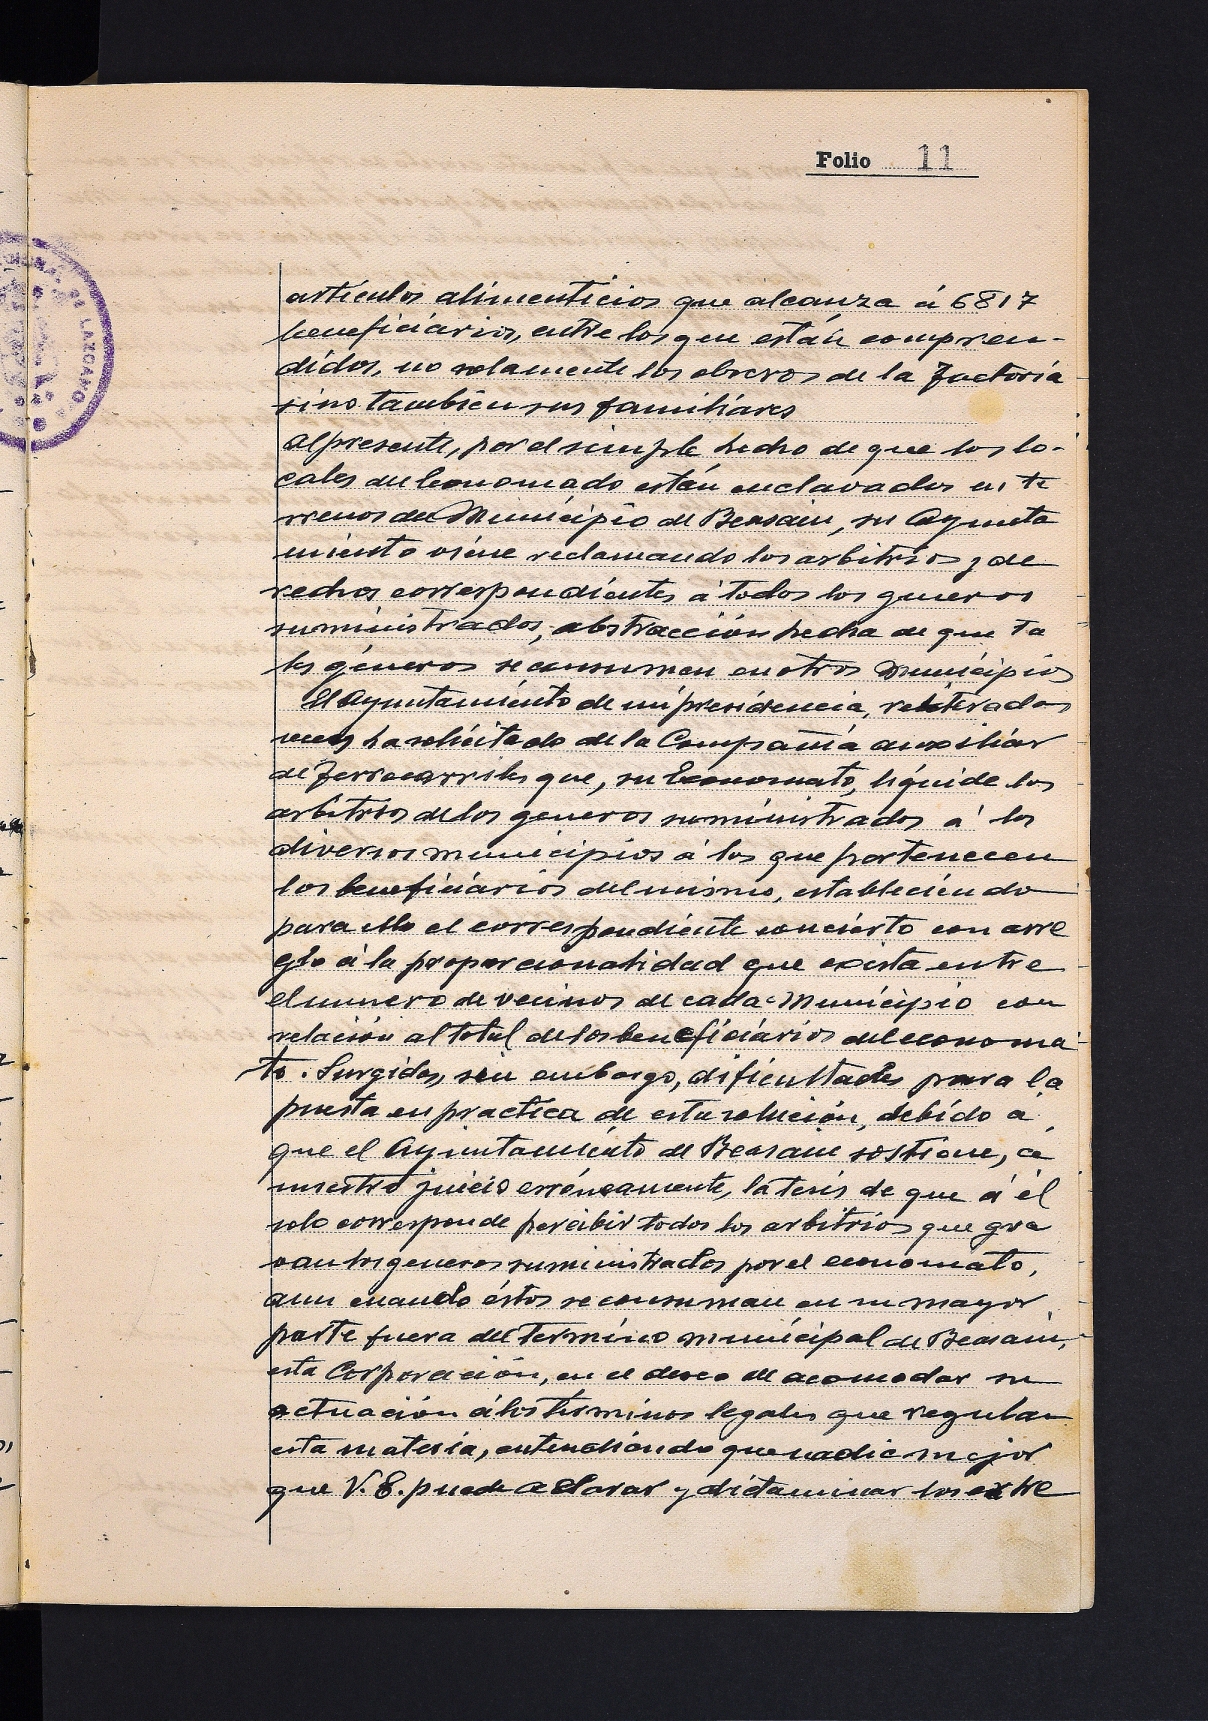 Folio 11
artículos alimenticios que alcanza á 6817
beneficiarios, entre los que están compren-
didos, no solamente los obreros de la Factoría
sino también sus familiares
Al presente, por el simple hecho de que los lo-
cales del Economado están enclavados en te
rrenos del Município de Beasain, su Ayunta
miento viene reclamando los arbitrios y de
rechos correspondientes á todos los generos
suministrados, abstracción hecha de que ta
les géneros se consumen en otros Municipios
El Ayuntamiento de mi presidencia, reiteradas
veces ha solicitado de la Compañía auxiliar
de Ferrocarriles que, su Economato, liquide los
arbitrios de los generos suministrados á los
diversos municipios á los que pertenecen
los beneficiarios del mismo, estableciendo
para ello el correspondiente concierto con arre
glo á la proporcionalidad que exista entre
el número de vecinos de cada Município con
relación al total de los beneficiarios del economa
to. Surgidas, sin embargo, dificultades para la
puesta en practica de esta solución, debido á
que el Ayuntamiento de Beasain sostiene, á
nuestro juicio erróneamente, la tesis de que á él
solo corresponde percibir todos los arbitrios que gra
van los generos suministrados por el economato,
aun cuando éstos se consuman en su mayor
parte fuera del término municipal de Beasain,
esta Corporación, en el deseo de acomodar su
actuación á los terminos legales que regulan
esta materia, entendiendo que nadie mejor
que V.E. puede aclarar y dictaminar los extre
DE LAZCANO